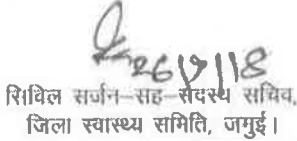 26/7/18
सिविल सर्जन–सह–सदस्य सचिव,
जिला स्वास्थ्य समिति, जमुई।